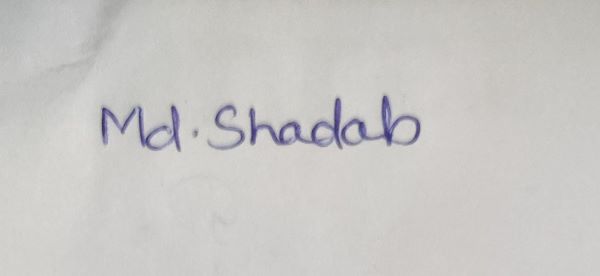 Md. Shadab